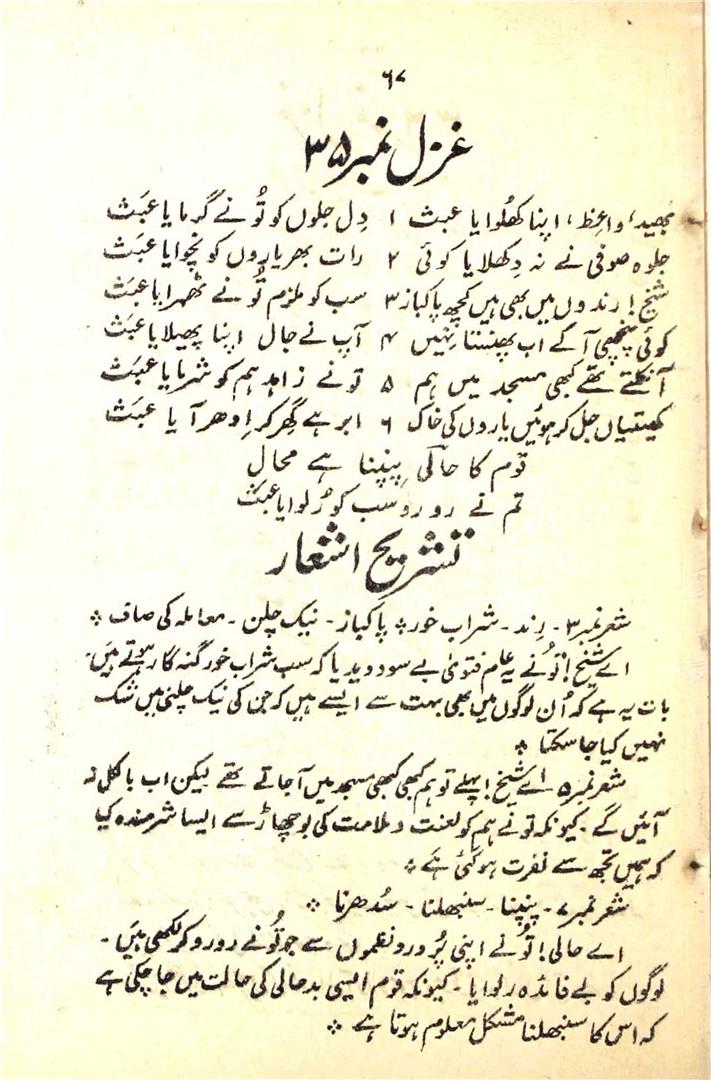 ۶۷
غزل نمبر ۳۵
بھید، واعِظ، اپنا کھُلوایا عبث ۱ دِل جلوں کو تُو نے گرمایا عبَث
جلوہ صوفی نے نہ دِکھلایا کوئی ۲ رات بھر یاروں کو نچوایا عبَث
شیخ! رندوں میں بھی ہیں کچھ پاکباز ۳ سب کو ملزم تُو نے ٹھہرایا عبَث
کوئی پنچھی آکے اب پھنستا نہیں ۴ آپ نے جال اپنا پھیلایا عبَث
آنکلتے تھے کبھی مسجد میں ہم ۵ تونے زاہد ہم کو شرمایا عبَث
کھیتیاں جل کر ہوئیں یاروں کی خاک ۶ ابر ہے گھِر کر اِدھر آیا عبَث
قوم کا حالی پنپنا ہے محال
تم نے رو رو سب کو رُلوایا عبَث
تشریح اشعار
شعر نمبر ۳۔ رِند۔ شراب خور٭ پاکباز۔ نیک چلن۔ معاملہ کی صاف ٭
اے شیخ! تُو نے یہ عام فتویٰ بے سود دیدیا کہ سب شراب خور گنہگار ہوتے ہیں۔
بات یہ ہے کہ اُن لوگوں میں بھی بہت سے ایسے ہیں کہ جن کی نیک چلنی میں شک
نہیں کیا جا سکتا ٭
شعر نمبر ۵ اے شیخ! پہلے تو ہم کبھی کبھی مسجد میں آجاتے تھے لیکن اب بالکل نہ
آئیں گے۔ کیونکہ تونے ہم کو لعنت و ملامت کی بوچھاڑ سے ایسا شرمندہ کیا
کہ ہمیں تجھ سے نفرت ہوگئی ہے ٭
شعر نمبر ۷۔ پنپنا۔ سنبھلنا۔ سُدھرنا ٭
اے حالی! تُو نے اپنی پُر درد نغموں سے جو تُو نے رو رو کر لکھی ہیں۔
لوگوں کو بے فائدہ رلوایا۔ کیونکہ قوم ایسی بدحالی کی حالت میں جا چکی ہے
کہ اس کا سنبھلنا مشکل معلوم ہوتا ہے ٭